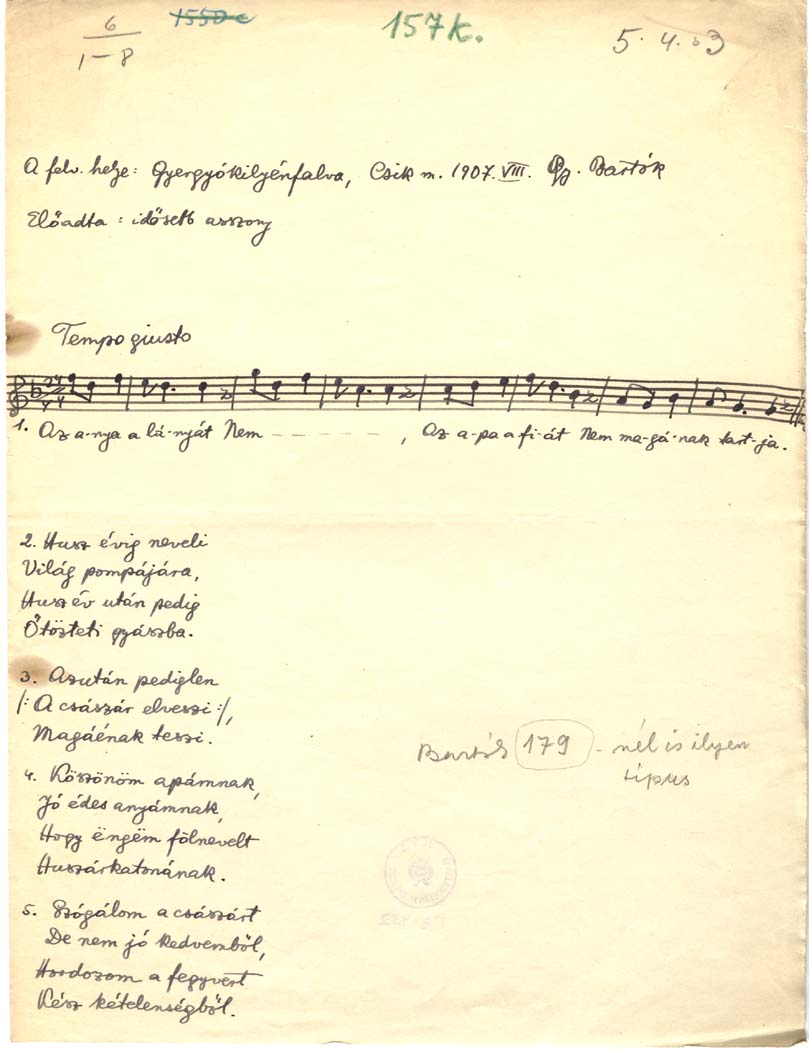 6
1-8
1550 c
157k.
5.4.53
A felv. helye: Gyergyókilyénfalva, Csik m. 1907. VIII. Gy. Bartók
Előadta: idősebb asszony
Tempo giusto
1. Az a-nya a lá-nyát Nem - - - - - - - , Az a-pa a fi-át Nem ma-gá-nak tart-ja.
2. Husz évig neveli
Világ pompájára,
Husz év után pedig
Őtözteti gyászba.
3. Azután pediglen
/: A császár elveszi :/,
Magáénak teszi.
4. Köszönöm apámnak,
Jó édes anyámnak,
Hogy ëngëm fölnevelt
Huszárkatonának.
5. Szógálom a császárt
De nem jó kedvemből,
Hordozom a fegyvert
Kész kételenségből.
Bartók 179 -nél is ilyen
tipus